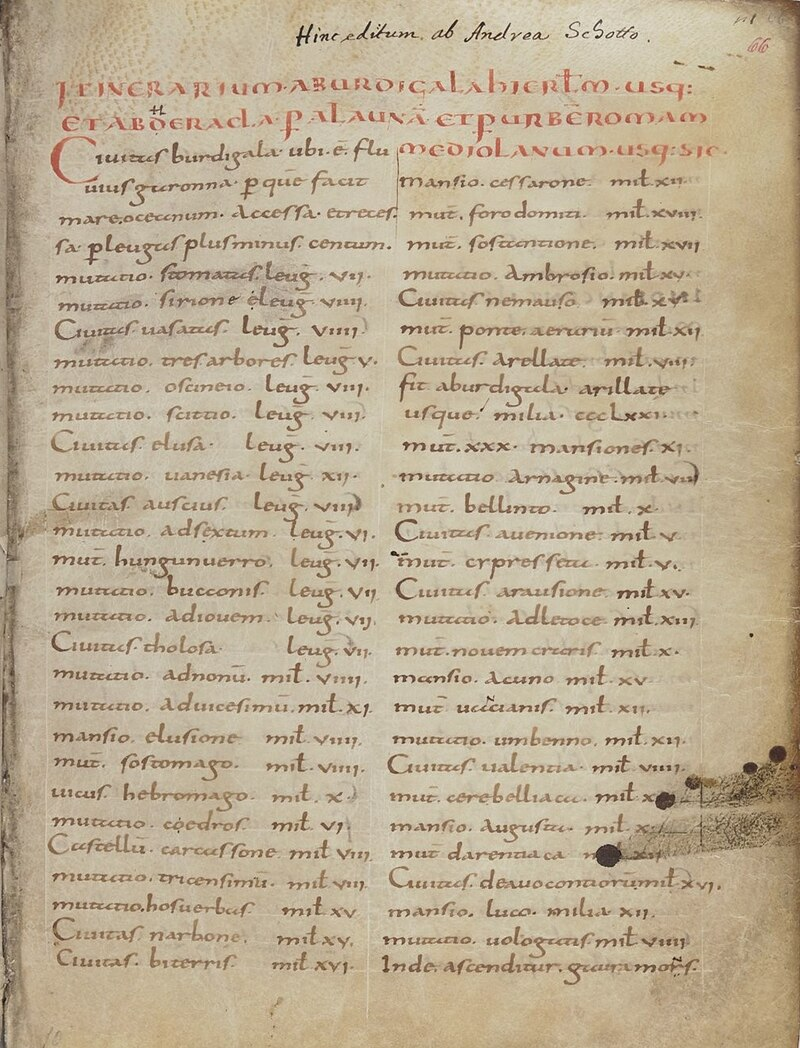 Hinc editum ab Andrea Schotto.
66
ITINERARIUM · A BURDIGALA HIERŁM · USQ:
ET AB HERACLA · P AULAUNĀ ET P URBĒ ROMAM
MEDIOLANUM · USQ: SIC
Ciuitas burdigala · ubi · ē · flu
uius garonna · p quē facit
mare · oceanum · accessa · et reces
sa · p leugas plus minus centum.
mutatio · stomatas leug̅ · VII ·
mutatio · sirione leug̅ · VIIII ·
Ciuitas uasatas leug̅ · VIIII
mutatio · tres arbores leug̅ V ·
mutatio · oscineio · leug̅ · VIII ·
mutatio · scittio · leug̅ · VIII ·
Ciuitas elusa · leug̅ · VIII ·
mutatio · uanesia · leug̅ XII ·
Ciuitas auscius leug̅ · VIII
mutatio · ad sextum leug̅ · VI ·
mut̅ · hungunuerro leug̅ · VII ·
mutatio · bucconis leug̅ · VII
mutatio · ad iouem · leug̅ · VII ·
Ciuitas tholosa · leug̅ · VII ·
mutatio · ad nonū · mil̅ · VIIII ·
mutatio · ad uicesimū · mil̅ · XI ·
mansio · elusione mil̅ · VIIII ·
mut̅ · sostomago · mil̅ · VIIII ·
uicus hebromago · mil̅ · X ·
mutatio · coedros mil̅ VI ·
Castellū · carcassone mil̅ VIII
mutatio · tricensimū · mil̅ · VIII ·
mutatio · hosuerbas mil̅ XV
Ciuitas narbone · mil̅ XV ·
Ciuitas · biterris · mil̅ XVI ·
mansio · cessarone mil̅ XII
mut̅ · foro domiti · mil̅ XVIII ·
mut̅ · sostantione · mil̅ XVII
mutatio · Ambrosio · mil̅ XV ·
Ciuitas nemauso mil̅ XV
mut̅ · ponte · aerariū mil̅ XII
Ciuitas · Arellate · mil̅ · VIII ·
fit a burdigala · arillate
usque · milia · CCCLXXI ·
mut̅ · XXX · mansiones XI ·
mutatio Arnagine · mil̅ VII
mut̅ · bellinto · mil̅ · X ·
Ciuitas auenione · mil̅ V
mut̅ · cypresseta · mil̅ V ·
Ciuitas arausione mil̅ XV ·
mutatio · Ad letoce mil̅ XIII
mut̅ · nouem craris mil̅ X ·
mansio · Acuno mil̅ XV
mut̅ uancianis mil̅ XII ·
mutatio · umbenno · mil̅ XII ·
Ciuitas ualentia · mil̅ VIIII ·
mut̅ · cerebelliaca · mil̅ X
mansio · Augusta · mil̅ X
mut̅ darentiaca XII
Ciuitas deauocontiorum mil̅ XVI ·
mansio · luco · milia XII ·
mutatio · uologatis mil̅ VIIII
Inde · ascenditur · gaura mons